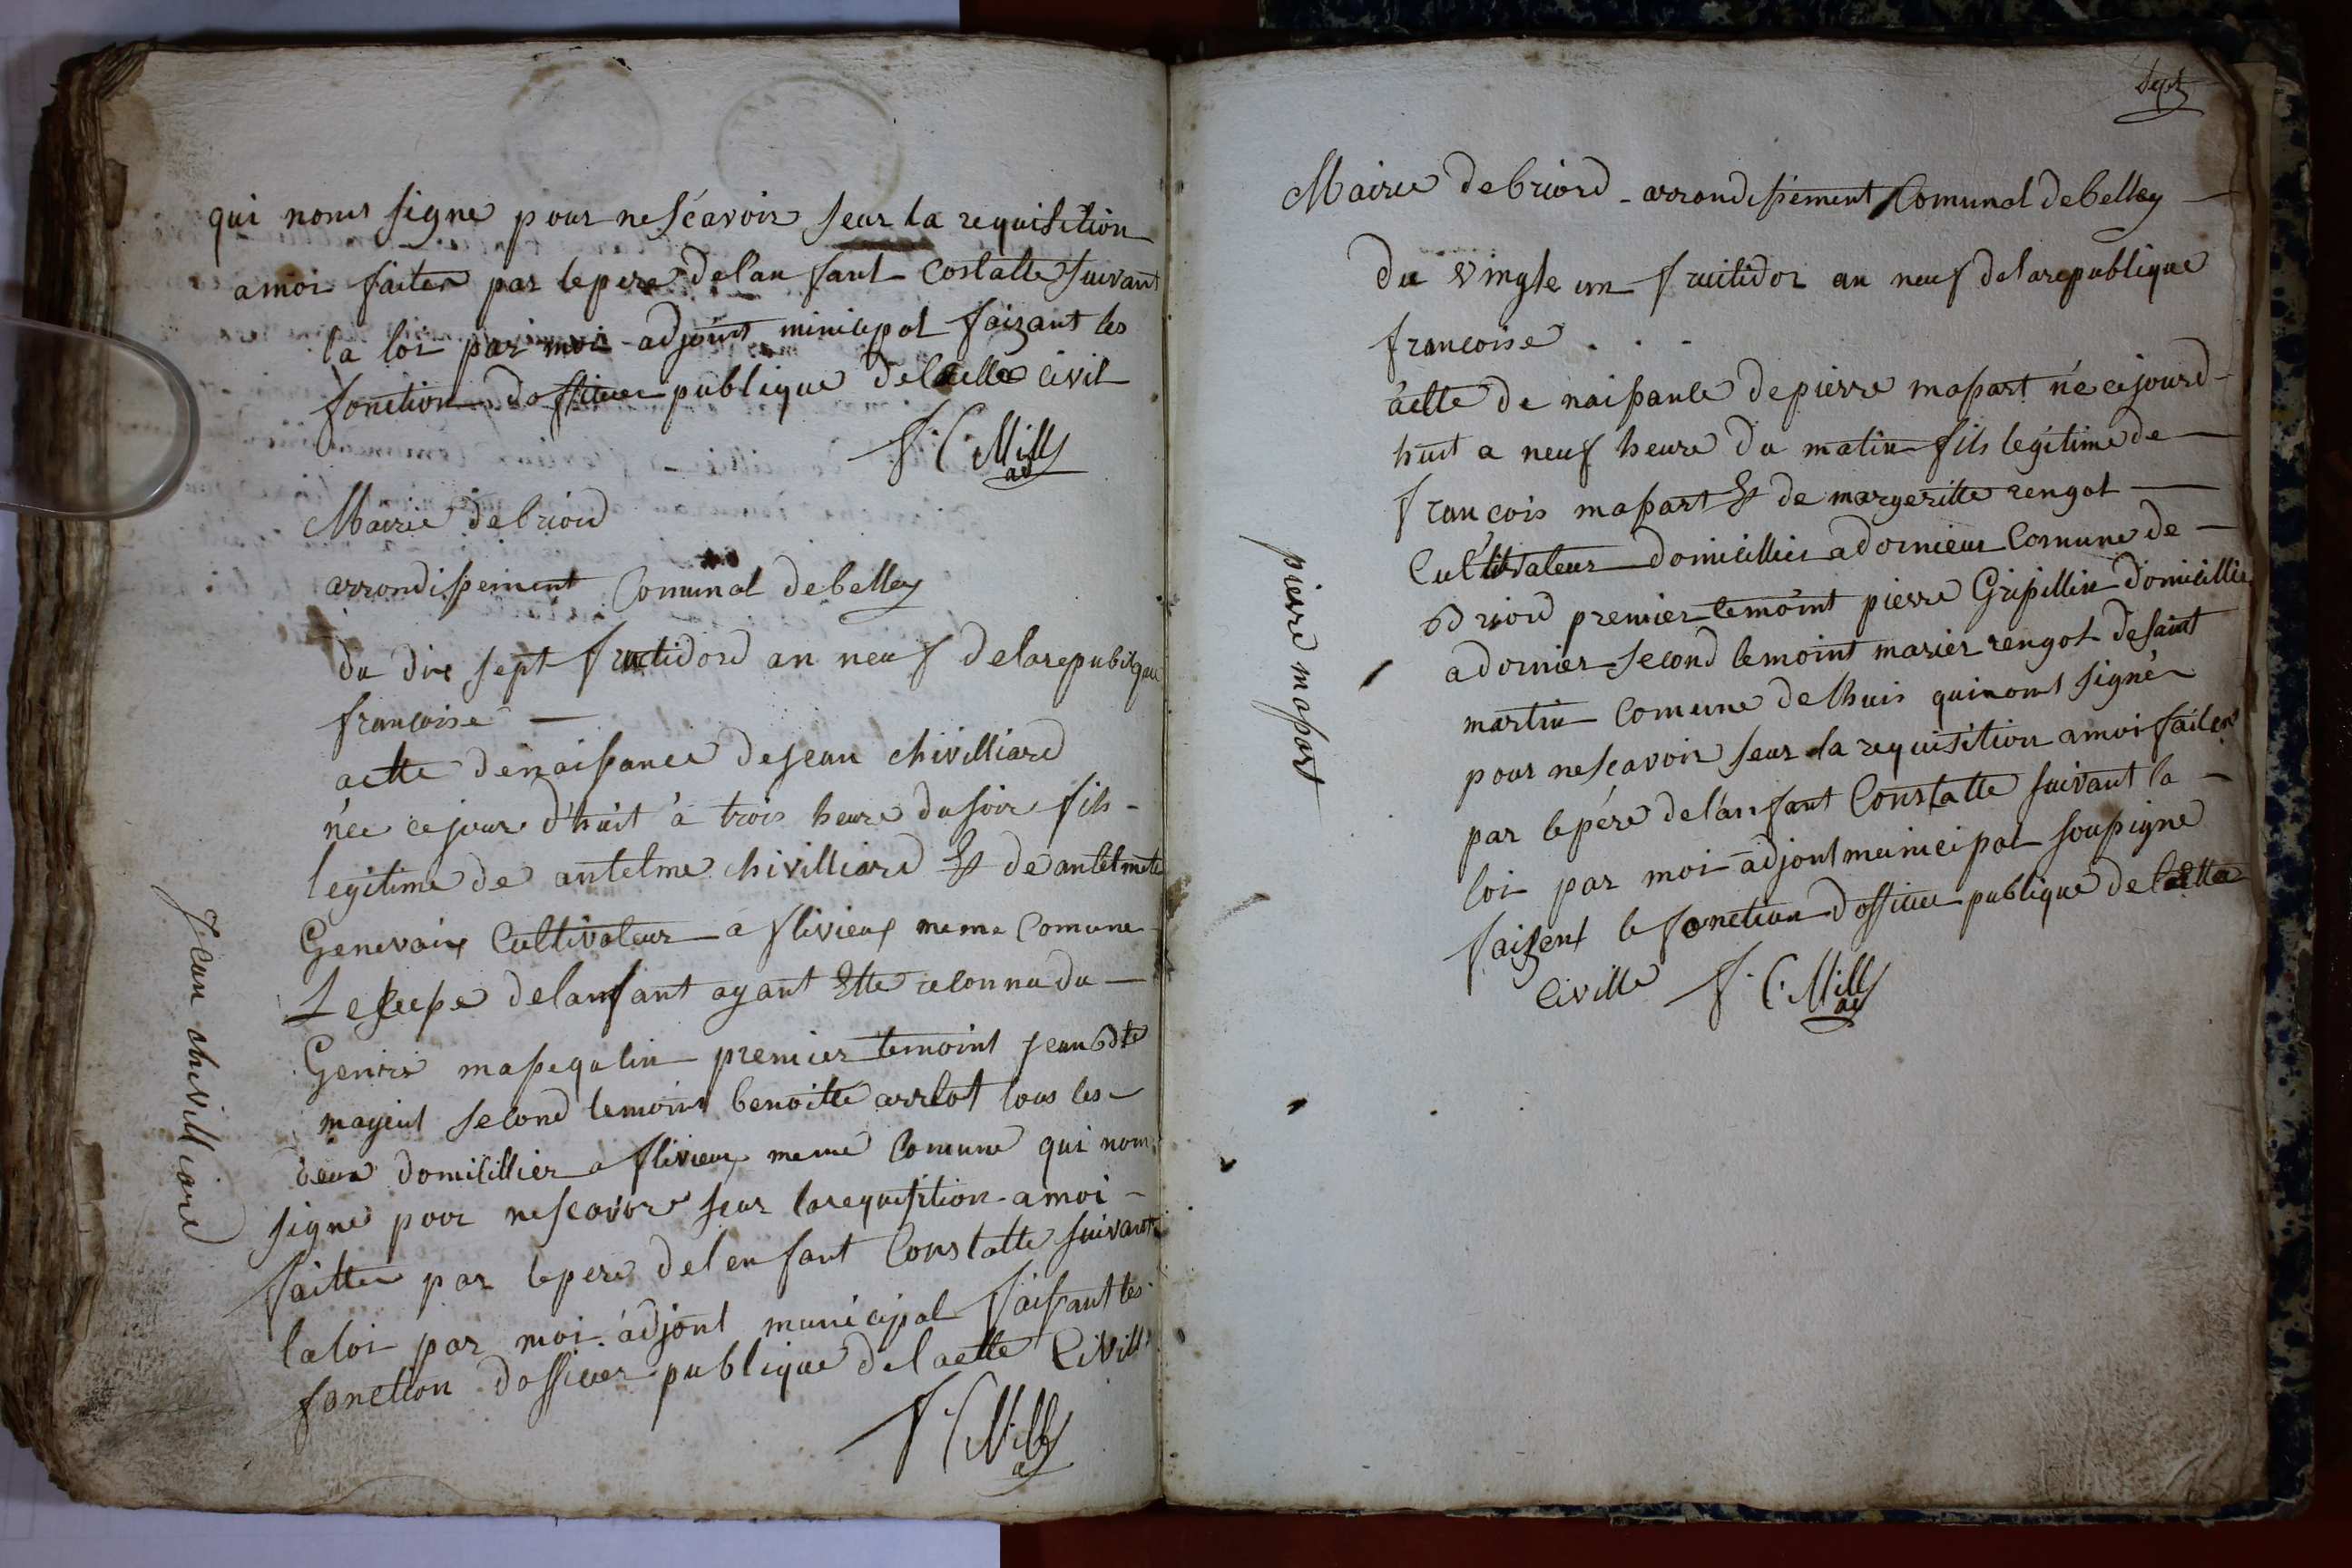 qui nomt signe pour nescavoir seur la requisition
amoi faiter par lepere delan fant Costatte suivant
la loi par moi adjoint minicpol faizant les
fonction dofficier publique delactte civil
f. C. Mill
ad
Mairie debriord
arrondissement Comunal debelley
du dix sept fructidord an neuf delarepubliqau
francoise
actte denaissance dejean chivilliard
née cejour d'huit à trois heure dusoir fils
legitime de antelme chivilliard Et de antelmete
Genevaix Cultivateur a flivieux meme Comune
Lesexse delanfant ayant Ette reconnu du
Genre masqulin premier temoint jean bdte
magent second temoint benoitte arrlot tous les
deux domicillier a flivieux meme Comune qui nom
signe pour nescavoir seur larequisition amoi
faitter par lepere delenfant Constatte suivant
laloi par moi adjont municipal faissant les
fonction dofficier publique delactte Civill
f. C. Mill
a
jean chivilliard
Sept
Mairie debriord arrondissement Comunal debelley
du vingte un fructidor an neuf delarepublique
francoise . . .
actte de naissance depierre massart né cejourd
huit a neuf heure du matin fils legitime de
francois massart Et de margeritte rengot
Cultivateur domicillier adornieur Comune de
Briord premier temoint pierre Gripillin domicillié
adornier second temoint marier rengot desaint
martin Comune delhuis quinomt signé
pour nescavoir seur la requisition amoi faiter
par lepére delanfant Constatte suivant la
loi par moi adjont municipal soussigne
faizent le fonction dofficier publique delactte
Civille f. C. Mill
ad
pierre massart